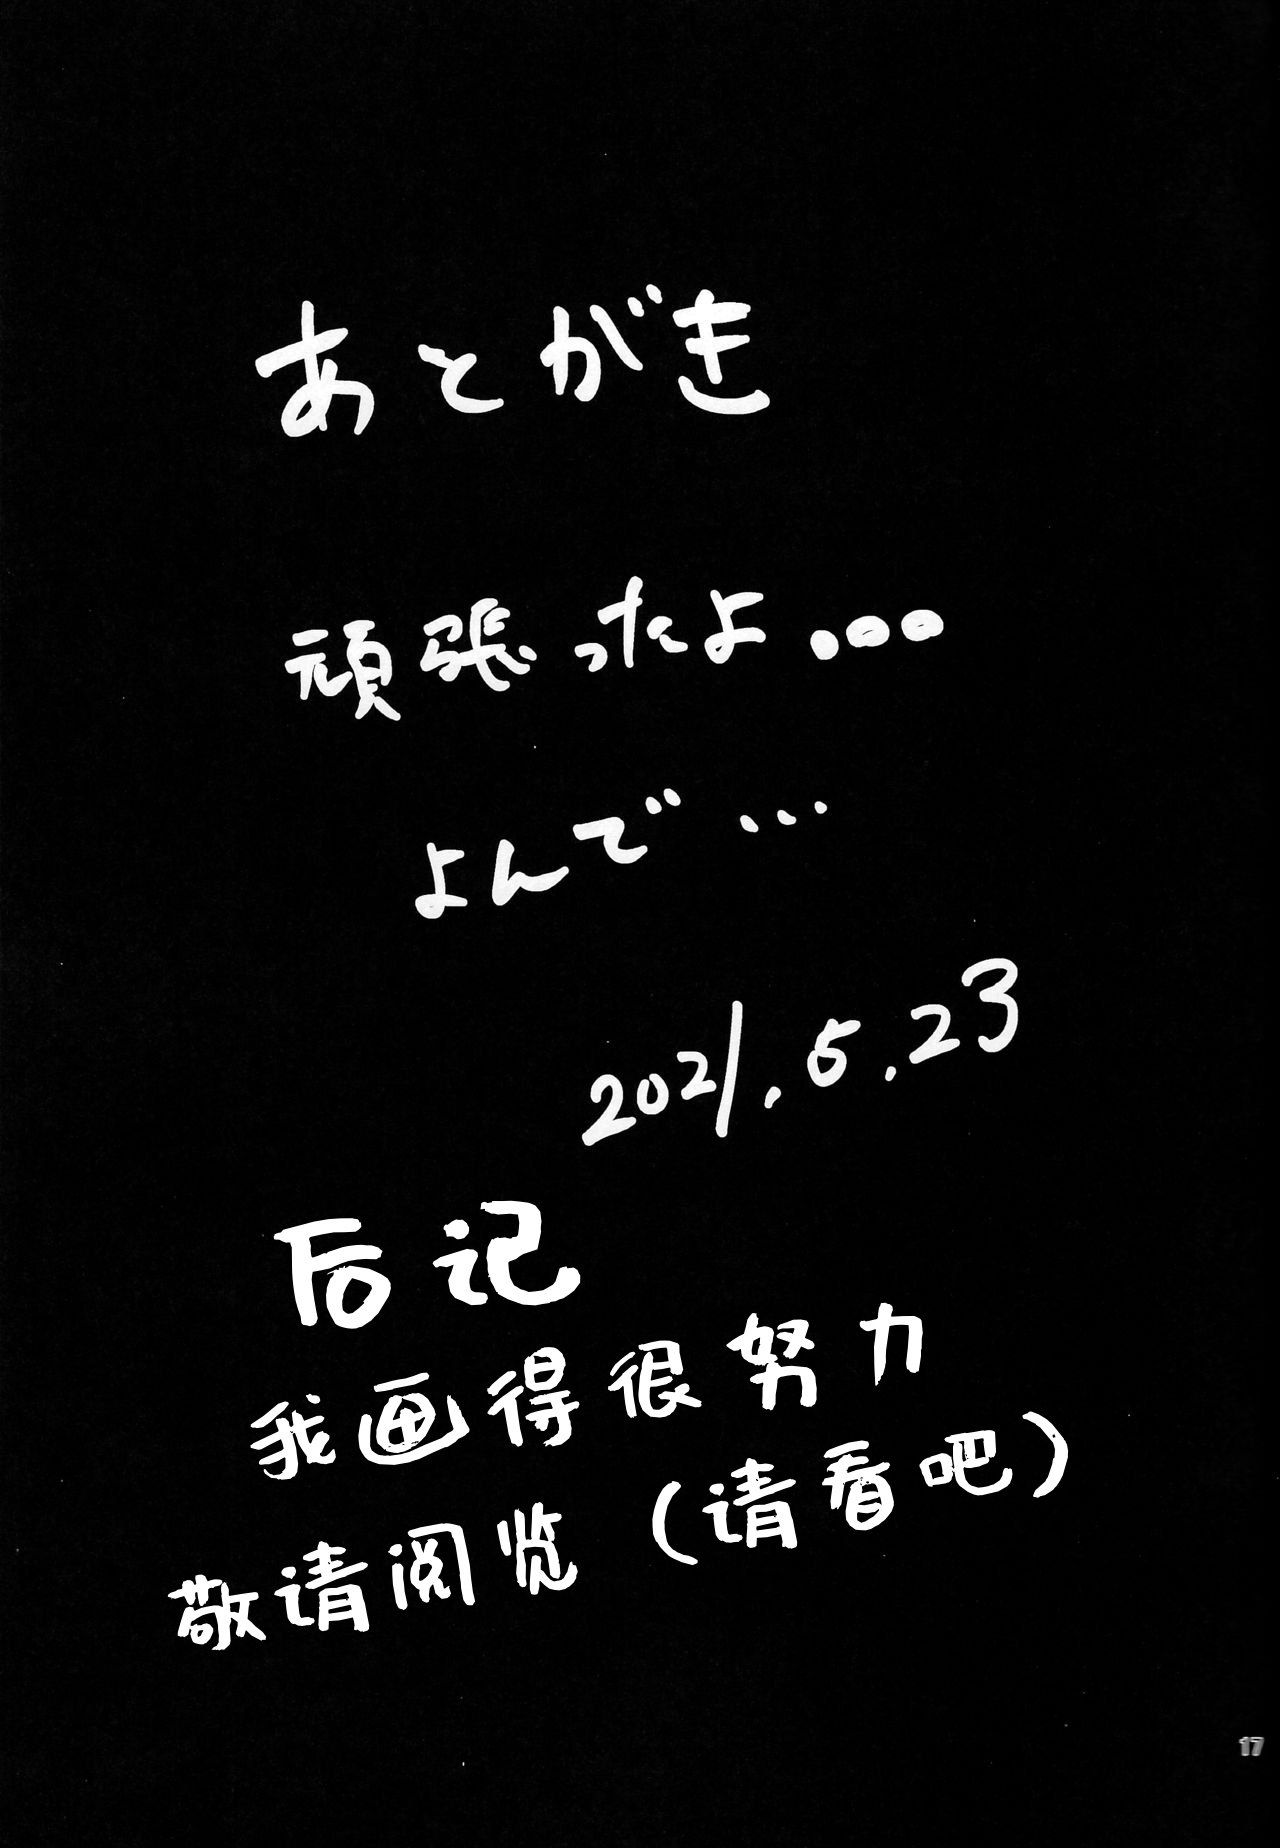 あとがき
頑張ったよ...
よんで...
2021.5.23
后记
我画得很努力
敬请阅览(请看吧)
17